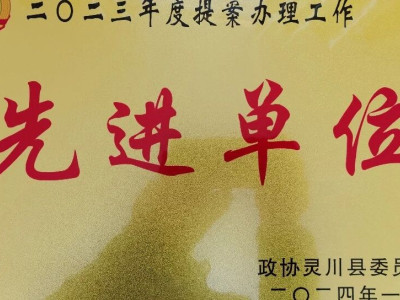 二〇二三年度提案办理工作
先进单位
政协灵川县委员
二〇二四年一